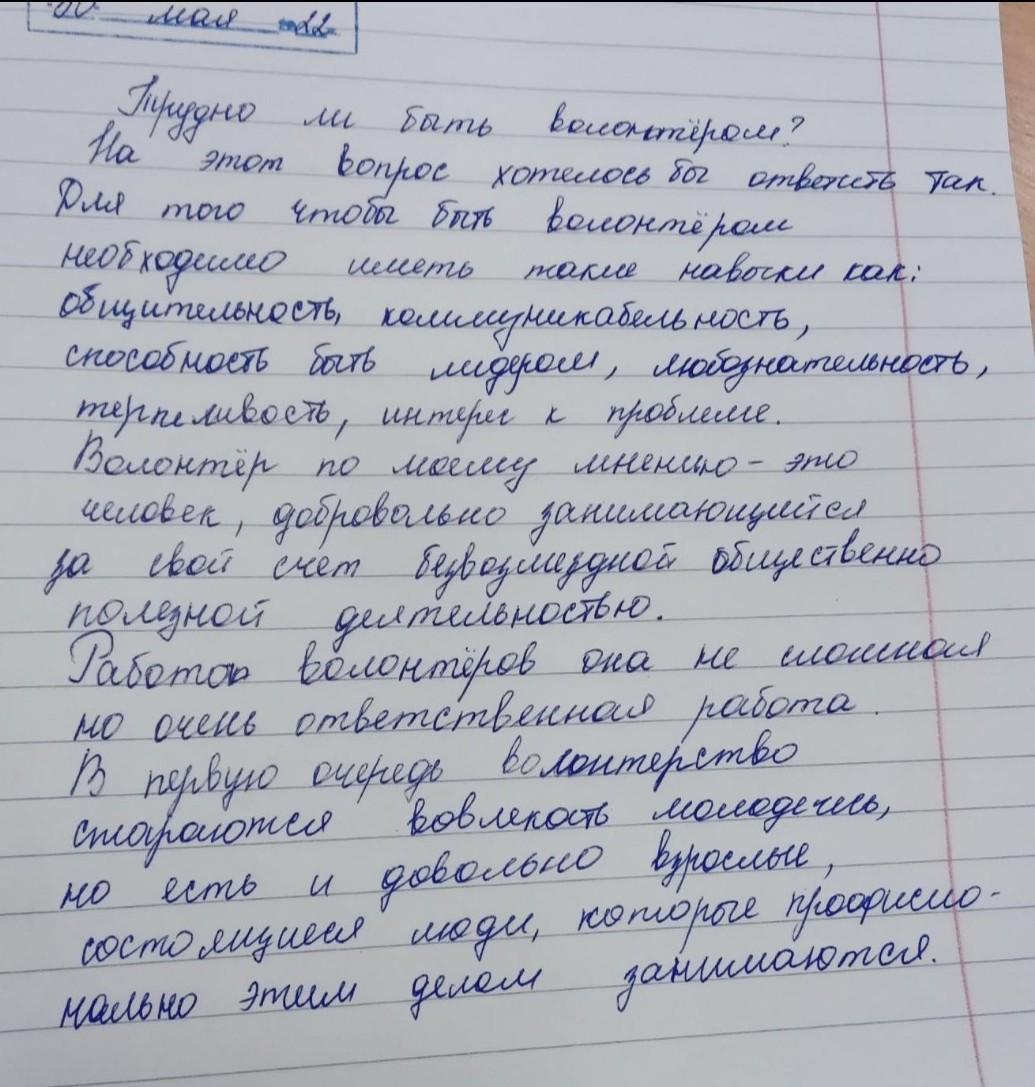 мая 22
Трудно ли быть волонтёром?
На этот вопрос хотелось бы ответить так.
Для того чтобы быть волонтёром
необходимо иметь такие навыки как:
общительность, коммуникабельность,
способность быть лидером, любознательность,
терпеливость, интерес к проблеме.
Волонтёр по моему мнению - это
человек, добровольно занимающийся
за свой счет безвозмездной общественно
полезной деятельностью.
Работа волонтёров она не сложная
но очень ответственная работа.
В первую очередь волонтерство
стараются вовлекать молодежь,
но есть и довольно взрослые,
состоящиеся люди, которые профисио-
нально этим делом занимаются.